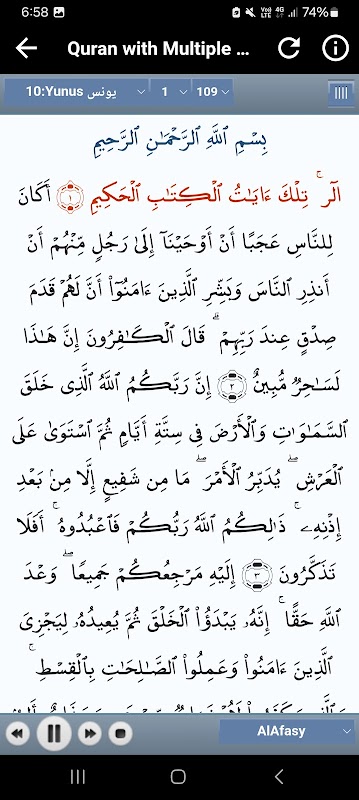 6:58
Vo) LTE 4G 74%
Quran with Multiple ...
10:Yunus يونس 1 109
بِسْمِ ٱللَّهِ ٱلرَّحْمَـٰنِ ٱلرَّحِيمِ
الٓر ۚ تِلْكَ ءَايَـٰتُ ٱلْكِتَـٰبِ ٱلْحَكِيمِ ١ أَكَانَ
لِلنَّاسِ عَجَبًا أَنْ أَوْحَيْنَآ إِلَىٰ رَجُلٍ مِّنْهُمْ أَنْ
أَنذِرِ ٱلنَّاسَ وَبَشِّرِ ٱلَّذِينَ ءَامَنُوٓا۟ أَنَّ لَهُمْ قَدَمَ
صِدْقٍ عِندَ رَبِّهِمْ ۗ قَالَ ٱلْكَـٰفِرُونَ إِنَّ هَـٰذَا
لَسَـٰحِرٌ مُّبِينٌ ٢ إِنَّ رَبَّكُمُ ٱللَّهُ ٱلَّذِى خَلَقَ
ٱلسَّمَـٰوَٰتِ وَٱلْأَرْضَ فِى سِتَّةِ أَيَّامٍ ثُمَّ ٱسْتَوَىٰ عَلَى
ٱلْعَرْشِ ۖ يُدَبِّرُ ٱلْأَمْرَ ۖ مَا مِن شَفِيعٍ إِلَّا مِنۢ بَعْدِ
إِذْنِهِۦ ۚ ذَٰلِكُمُ ٱللَّهُ رَبُّكُمْ فَٱعْبُدُوهُ ۚ أَفَلَا
تَذَكَّرُونَ ٣ إِلَيْهِ مَرْجِعُكُمْ جَمِيعًا ۖ وَعْدَ
ٱللَّهِ حَقًّا ۚ إِنَّهُۥ يَبْدَؤُا۟ ٱلْخَلْقَ ثُمَّ يُعِيدُهُۥ لِيَجْزِىَ
ٱلَّذِينَ ءَامَنُوا۟ وَعَمِلُوا۟ ٱلصَّـٰلِحَـٰتِ بِٱلْقِسْطِ ۚ
AlAfasy